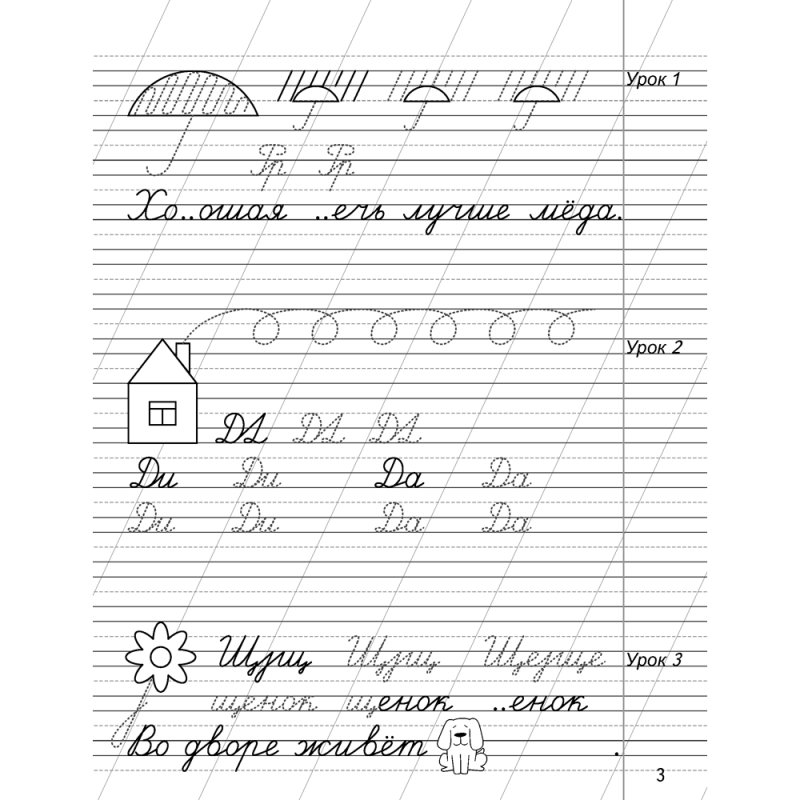 Урок 1
Рр Рр
Хо..ошая ..ечь лучше мёда.
Урок 2
Дд Дд Дд
Ди Ди Да Да
Ди Ди Да Да
Щщщ Щщщ Щещще
Урок 3
щенок щенок ..енок
Во дворе живёт .
3